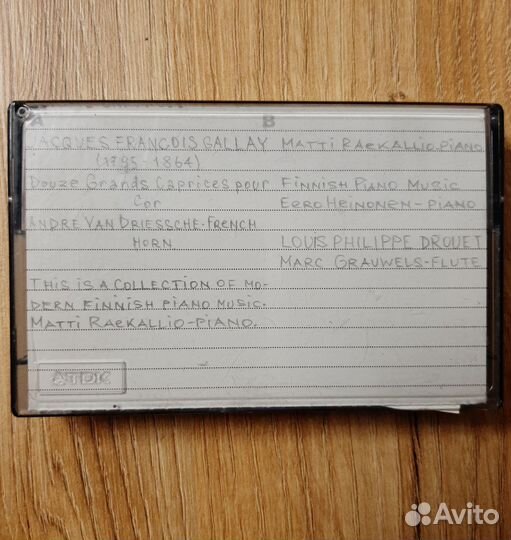 A
B
JACQUES FRANÇOIS GALLAY
(1795-1864)
Douze Grands Caprices pour
Cor
ANDRE VAN DRIESSCHE-FRENCH
HORN
THIS IS A COLLECTION OF MO-
DERN FINNISH PIANO MUSIC.
MATTI RAEKALLIO-PIANO.
MATTI RAEKALLIO-PIANO
FINNISH PIANO MUSIC
EERO HEINONEN-PIANO
LOUIS PHILIPPE DROUET
MARC GRAUWELS-FLUTE
TDK
Avito